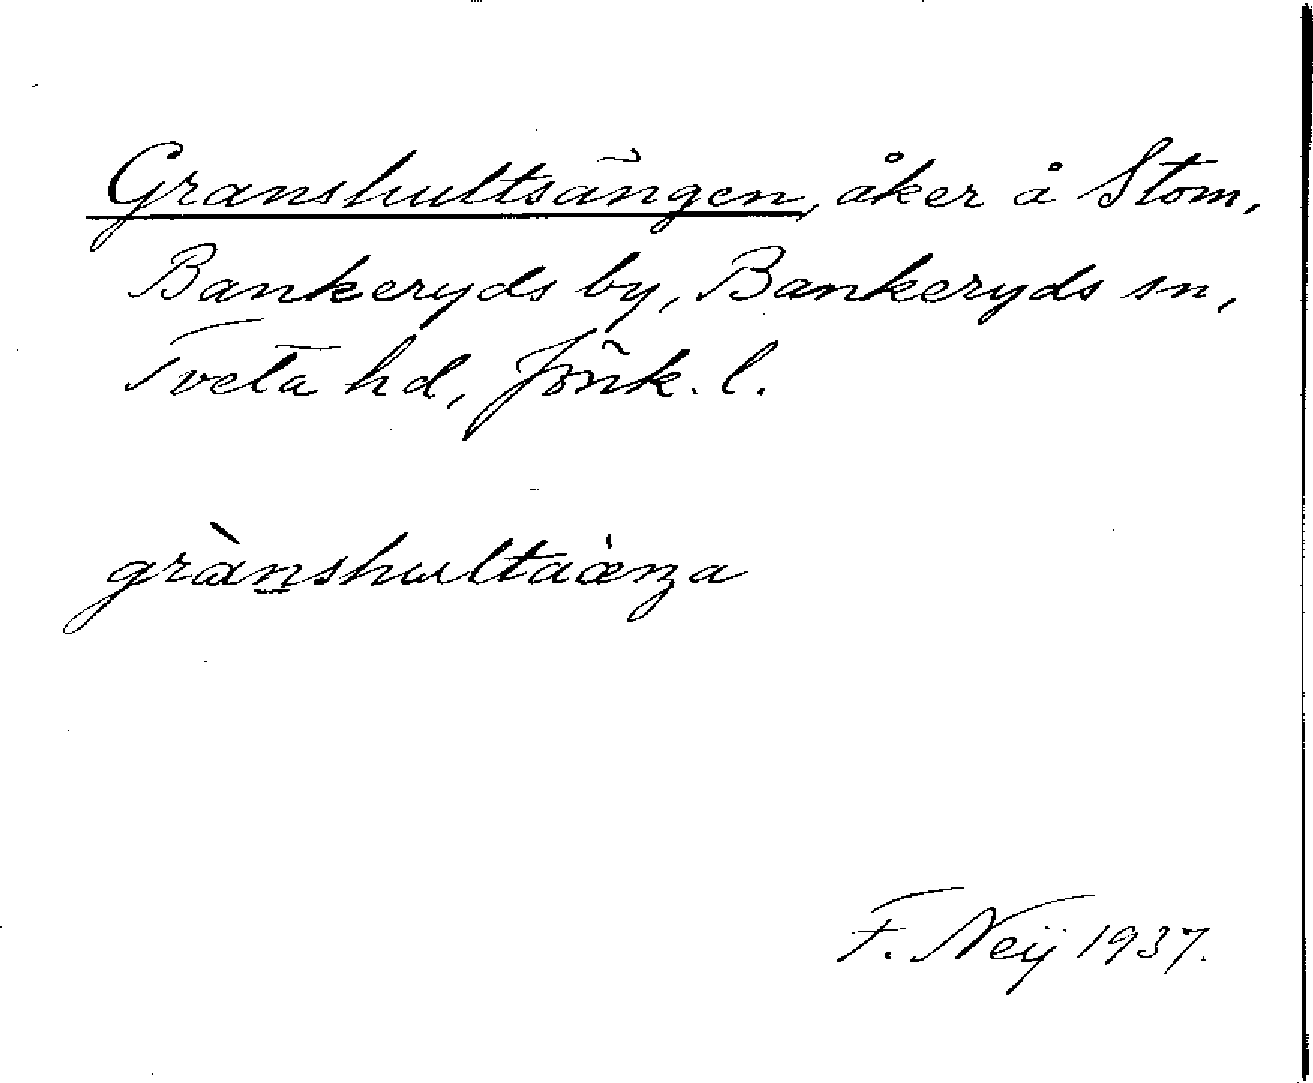 Granshultsängen, åker å Stom,
Bankeryds by, Bankeryds sn,
Tveta hd, Jönk. l.
grànshultaàŋa
F. Neij 1937.